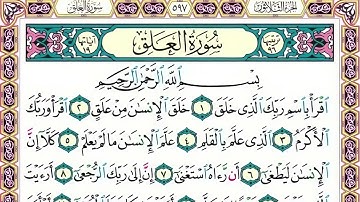 سُورَةُ العَلَقِ ٥٩٧ الجُزءُ الثَّلَاثُونَ
سُورَةُ العَلَقِ
بِسْمِ ٱللَّهِ ٱلرَّحْمَٰنِ ٱلرَّحِيمِ
ٱقْرَأْ بِٱسْمِ رَبِّكَ ٱلَّذِى خَلَقَ ١ خَلَقَ ٱلْإِنسَٰنَ مِنْ عَلَقٍ ٢ ٱقْرَأْ وَرَبُّكَ
ٱلْأَكْرَمُ ٣ ٱلَّذِى عَلَّمَ بِٱلْقَلَمِ ٤ عَلَّمَ ٱلْإِنسَٰنَ مَا لَمْ يَعْلَمْ ٥ كَلَّآ إِنَّ
ٱلْإِنسَٰنَ لَيَطْغَىٰٓ ٦ أَن رَّءَاهُ ٱسْتَغْنَىٰٓ ٧ إِنَّ إِلَىٰ رَبِّكَ ٱلرُّجْعَىٰٓ ٨ أَرَءَيْتَ